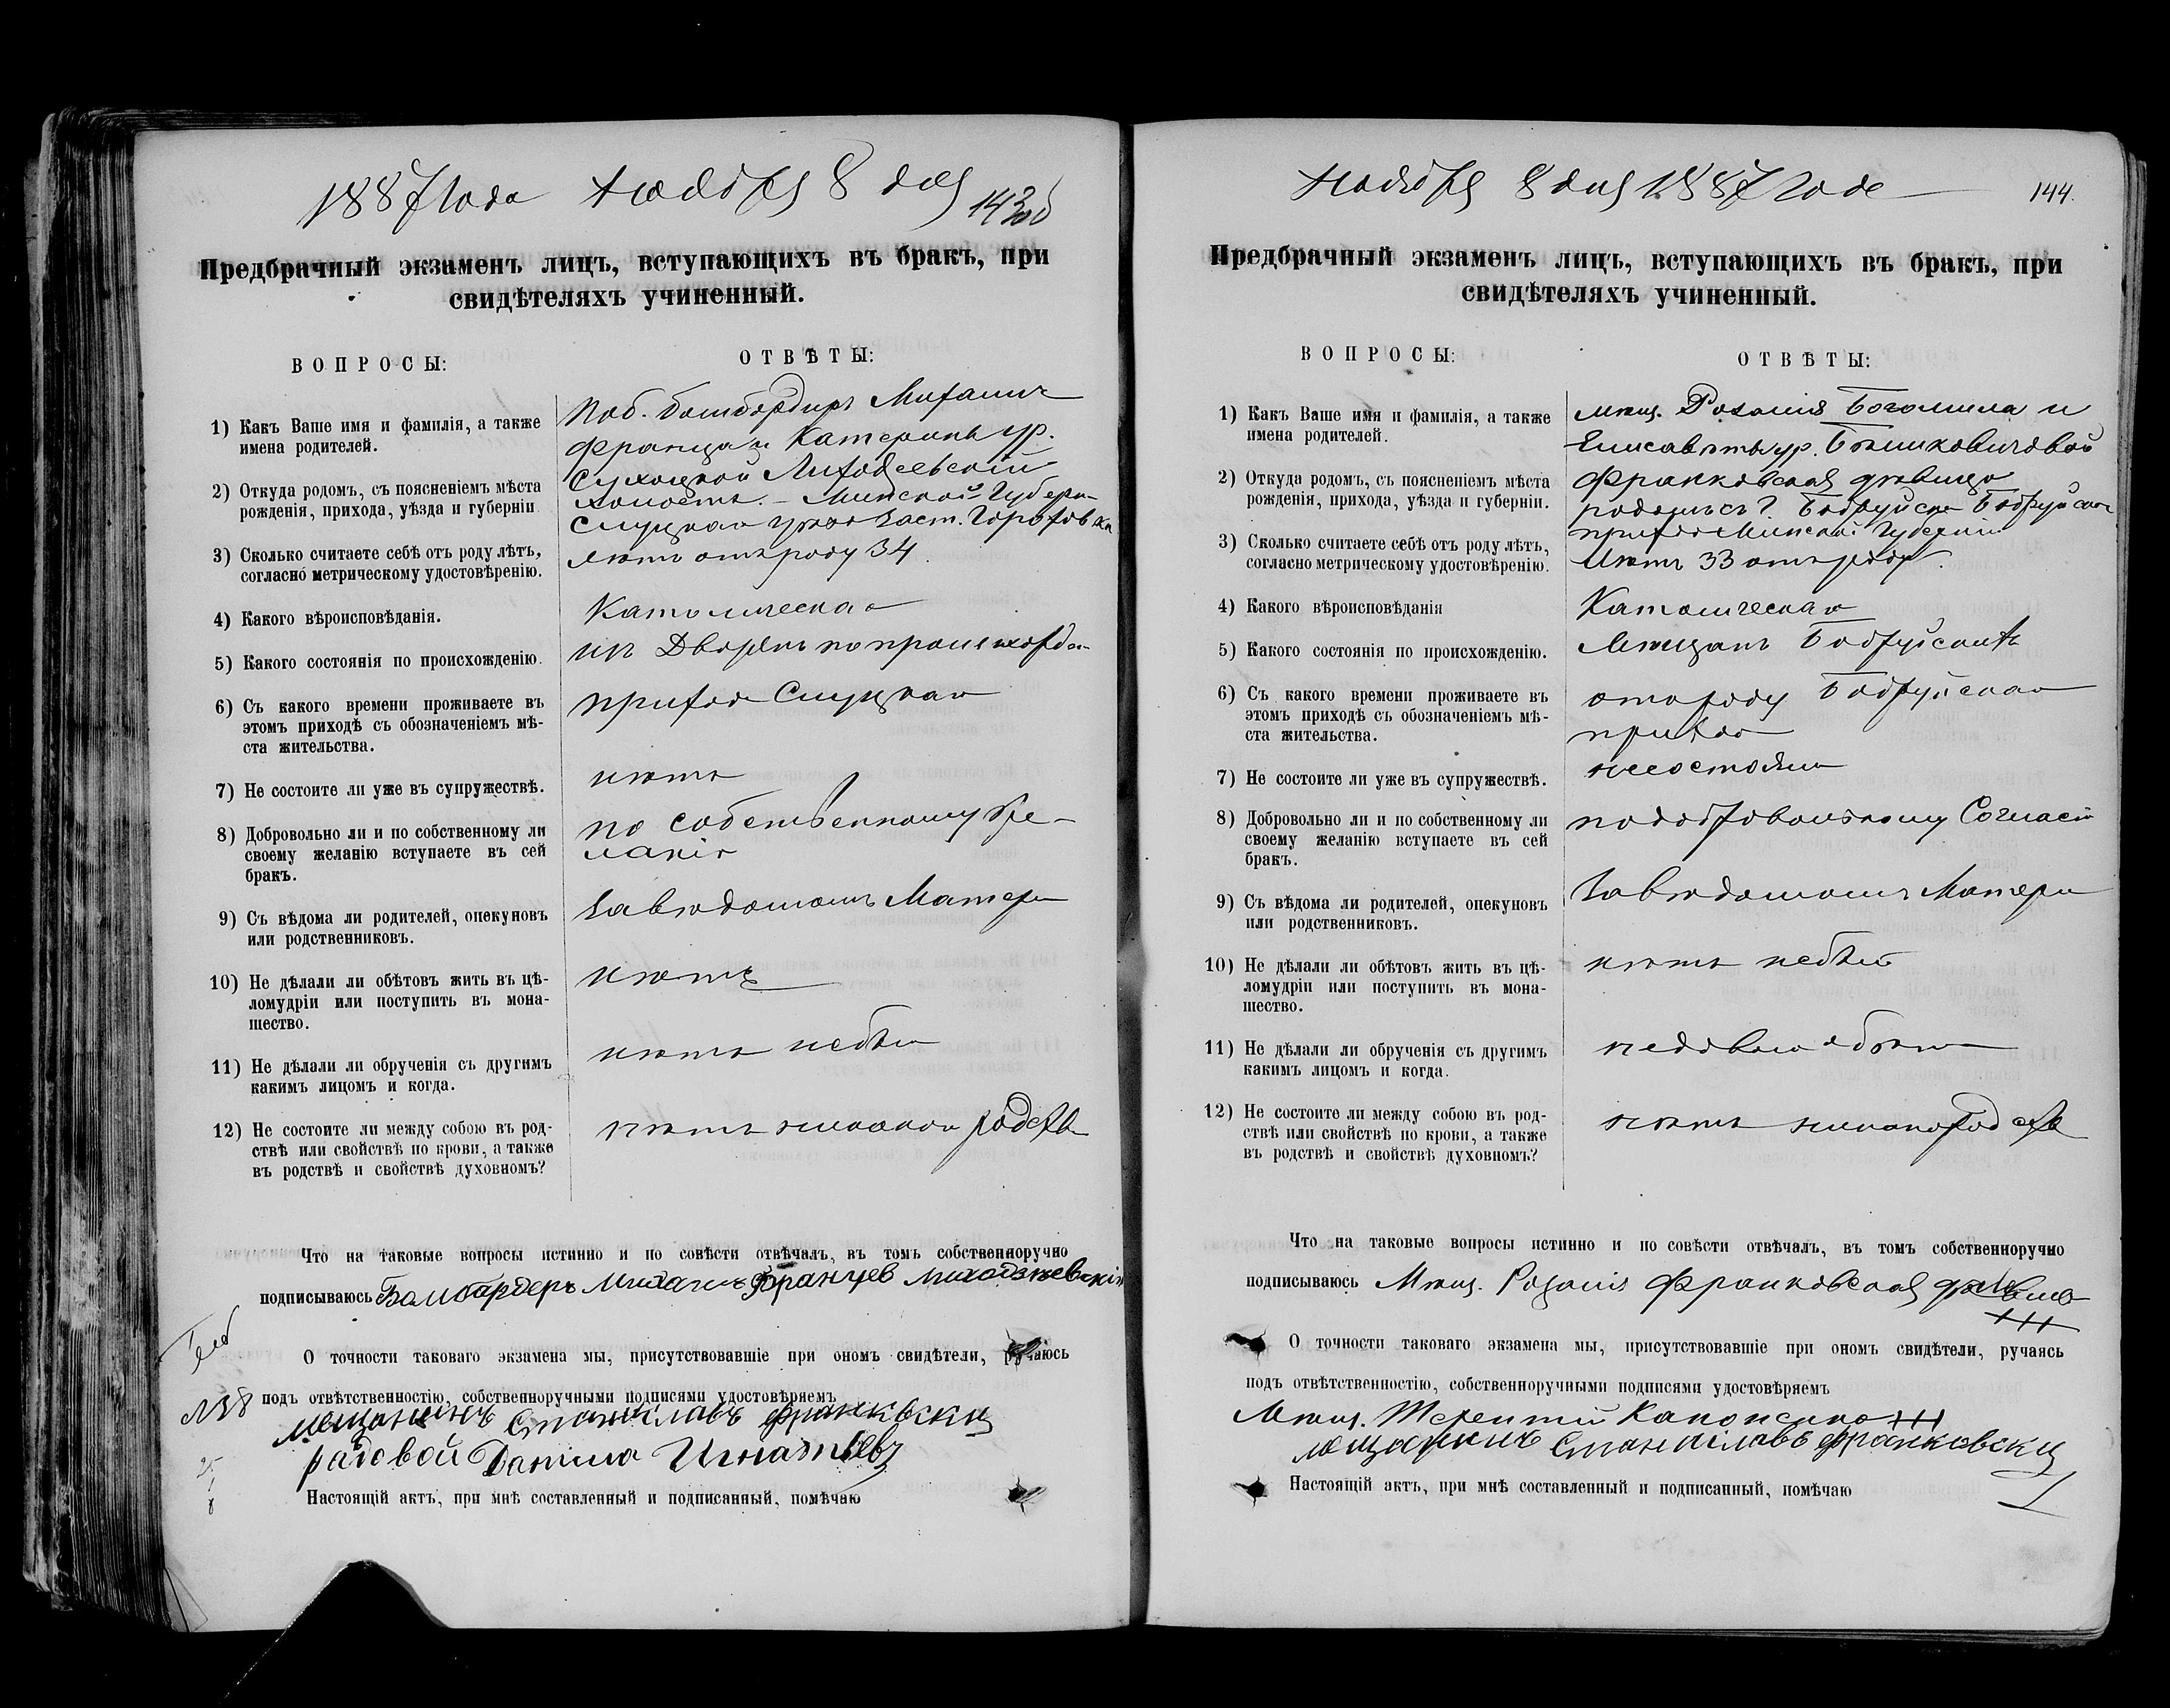 1887 года Ноября 8 дня
143об
Предбрачный экзаменъ лицъ, вступающихъ въ бракъ, при
свидѣтеляхъ учиненный.
ВОПРОСЫ:
ОТВѢТЫ:
1) Какъ Ваше имя и фамилія, а также
имена родителей.
бомбардиръ Михаилъ
Франца и Катерины ур.
2) Откуда родомъ, съ поясненіемъ мѣста
рожденія, прихода, уѣзда и губерніи
холостъ. – Минской Губерн-
3) Сколько считаете себѣ отъ роду лѣтъ,
согласно метрическому удостовѣренію.
лѣтъ отъ роду 34
4) Какого вѣроисповѣданія.
Католическаго
5) Какого состоянія по происхожденію.
изъ Дворянъ по происхожд
6) Съ какого времени проживаете въ
этомъ приходѣ съ обозначеніемъ мѣ-
ста жительства.
прихода Слуцкаго
7) Не состоите ли уже въ супружествѣ.
нѣтъ
8) Добровольно ли и по собственному ли
своему желанію вступаете въ сей
бракъ.
по собственному же-
ланію
9) Съ вѣдома ли родителей, опекуновъ
или родственниковъ.
Завѣдомомъ Матери
10) Не дѣлали ли обѣтовъ жить въ цѣ-
ломудріи или поступить въ мона-
шество.
нѣтъ
11) Не дѣлали ли обрученія съ другимъ
какимъ лицомъ и когда.
нѣтъ небыло
12) Не состоите ли между собою въ род-
ствѣ или свойствѣ по крови, а также
въ родствѣ и свойствѣ духовномъ?
нѣтъ никакого родства
Что на таковые вопросы истинно и по совѣсти отвѣчалъ, въ томъ собственноручно
подписываюсь Бомбардеръ Михаилъ Францев
О точности таковаго экзамена мы, присутствовавшіе при ономъ свидѣтели, ручаюсь
№ 8
подъ отвѣтственностію, собственноручными подписями удостовѣряемъ
мещанинъ Станиславъ Франковски
рядовой Данила Игнатьевъ
Настоящій актъ, при мнѣ составленный и подписанный, помѣчаю
Ноября 8 дня 1887 года
144.
Предбрачный экзаменъ лицъ, вступающихъ въ бракъ, при
свидѣтеляхъ учиненный.
ВОПРОСЫ:
ОТВѢТЫ:
1) Какъ Ваше имя и фамилія, а также
имена родителей.
мѣщ. Розалія Богомила и
Елисаветы ур.
2) Откуда родомъ, съ поясненіемъ мѣста
рожденія, прихода, уѣзда и губерніи.
Франковская дѣвица
прихода Минской Губерніи
3) Сколько считаете себѣ отъ роду лѣтъ,
согласно метрическому удостовѣренію.
лѣтъ 33 отъ роду.
4) Какого вѣроисповѣданія
Католическаго
5) Какого состоянія по происхожденію.
Мѣщанъ Бобруйскихъ
6) Съ какого времени проживаете въ
этомъ приходѣ съ обозначеніемъ мѣ-
ста жительства.
отъ роду Бобруйскаго
прихода
7) Не состоите ли уже въ супружествѣ.
несостояла
8) Добровольно ли и по собственному ли
своему желанію вступаете въ сей
бракъ.
подобровольному Согласію
9) Съ вѣдома ли родителей, опекуновъ
или родственниковъ.
Завѣдомомъ Матери
10) Не дѣлали ли обѣтовъ жить въ цѣ-
ломудріи или поступить въ мона-
шество.
нѣтъ небыло
11) Не дѣлали ли обрученія съ другимъ
какимъ лицомъ и когда.
12) Не состоите ли между собою въ род-
ствѣ или свойствѣ по крови, а также
въ родствѣ и свойствѣ духовномъ?
нѣтъ никакого родства
Что на таковые вопросы истинно и по совѣсти отвѣчалъ, въ томъ собственноручно
подписываюсь Мѣщ. Розалія Франковская
+++
О точности таковаго экзамена мы, присутствовавшіе при ономъ свидѣтели, ручаясь
подъ отвѣтственностію, собственноручными подписями удостовѣряемъ
Мѣщ. Терентій +++
мещанинъ Станиславъ Франковски
Настоящій актъ, при мнѣ составленный и подписанный, помѣчаю